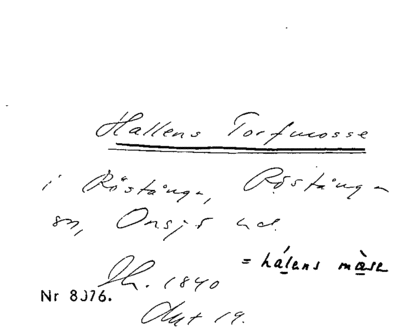 Hallens Torfmosse
i Röstånga, Röstånga
sn, Onsjö hd.
Sk. 1840
= hálens màse
Nr 8376.
Akt 19.